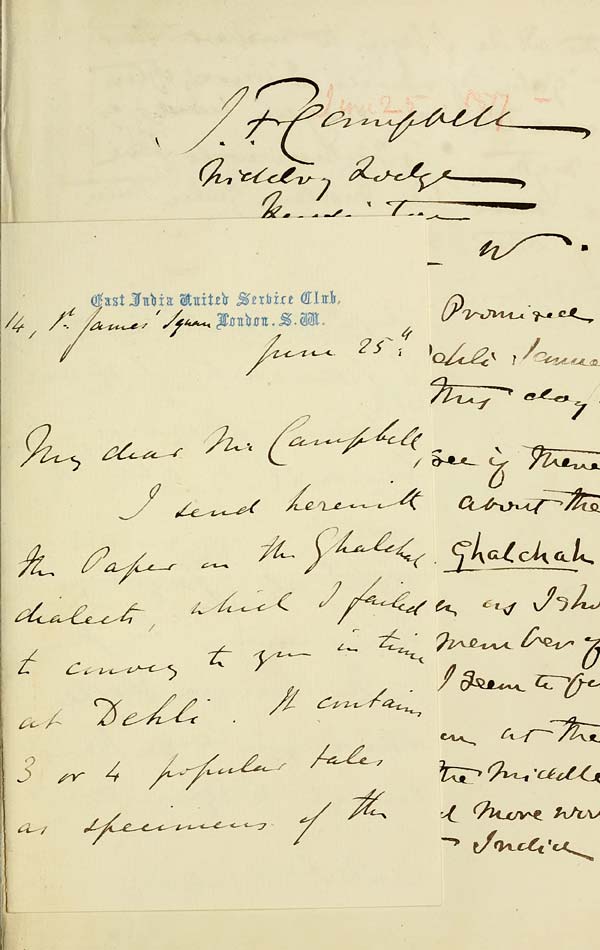 June 25 1877 -
J. F. Campbell
Niddry Lodge
W.
East India United Service Club,
14, St. James' Square London. S.W.
June 25th
My dear Mr Campbell,
I send herewith
the Paper on the Ghalchah
dialects, which I failed
to convey to you in time
at Dehli. It contains
3 or 4 popular tales
as specimens of the
Promised
ehli Janua
this day
see if there
about the
Ghalchah
en as I sh
member of
I seem to
en at the
the Middle
d more wor
India